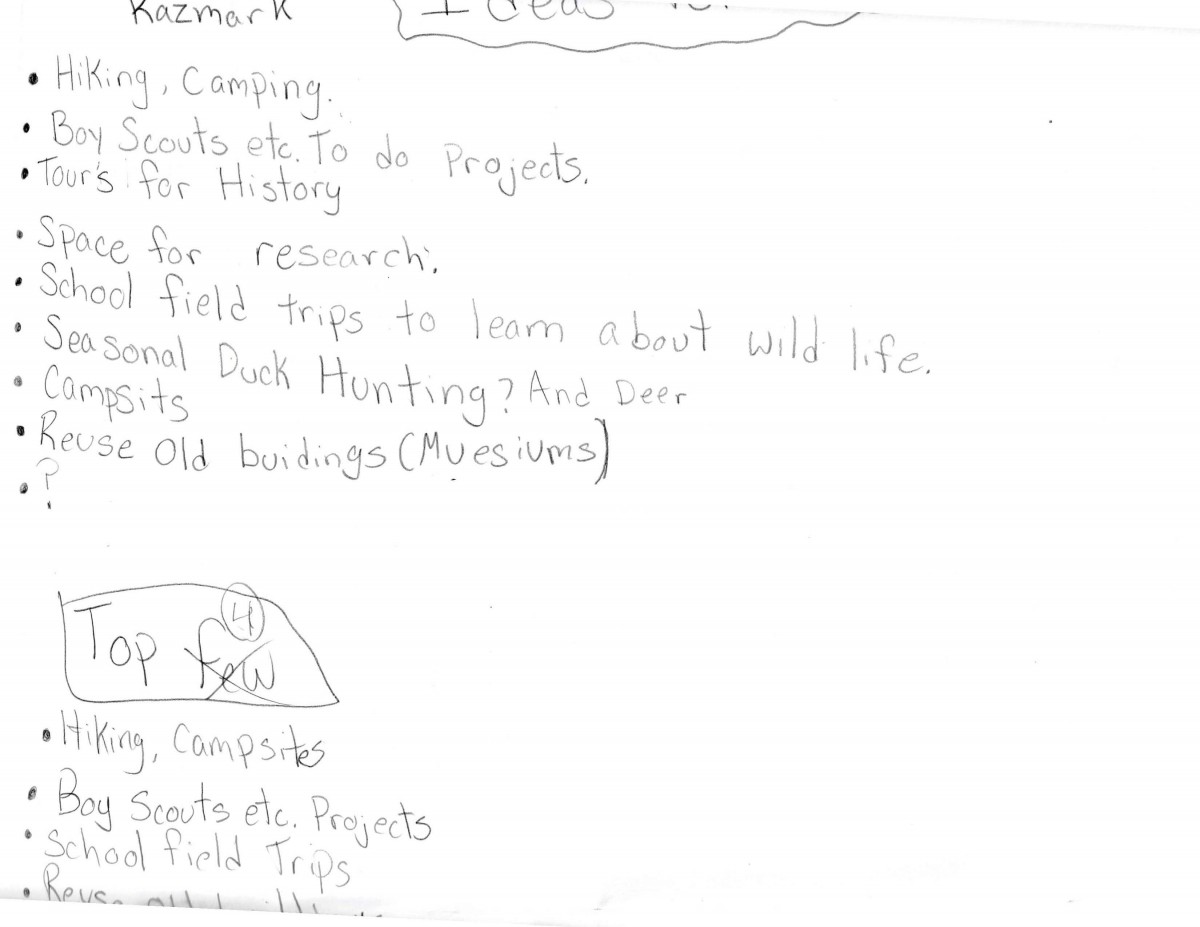 Kazmark
Ideas
• Hiking, Camping.
• Boy Scouts etc. To do Projects.
• Tour's for History
• Space for research.
• School field trips to learn about wild life.
• Seasonal Duck Hunting? And Deer
• Campsits
• Reuse Old buidings (Muesiums)
• ?
4
Top few
• Hiking, Campsites
• Boy Scouts etc. Projects
• School field Trips
• Reuse old